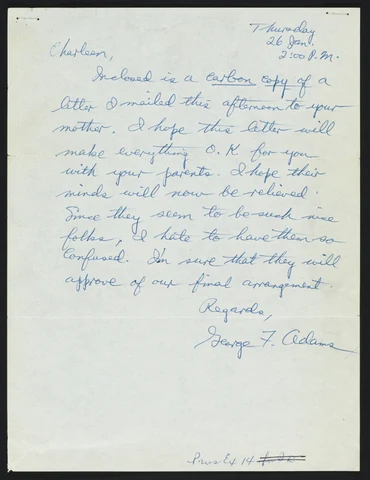 Thursday
26 Jan.
2:00 P.M.
Charleen,
Inclosed is a carbon copy of a
letter I mailed this afternoon to your
mother. I hope this letter will
make everything O.K for you
with your parents. I hope their
minds will now be relieved.
Since they seem to be such nice
folks, I hate to have them so
confused. I'm sure that they will
approve of our final arrangement.
Regards,
George F. Adams
Pros Ex 14